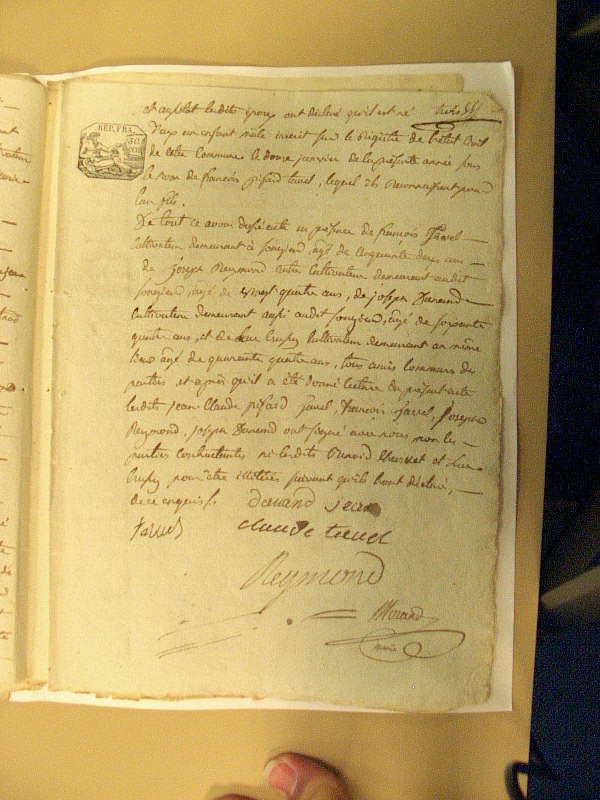 et aussitot lesdits epoux ont déclaré qu'il est né
d'eux un enfant male inscrit sur le Registre de l'etat Civil
RÉP. FRA.
50
de cette Commune le douze janvier de la présente année sous
le nom de françois pifard tavel, lequel ils Reconnaissent pour
leur fils.
De tout ce avons dressé acte en présence de françois Favel
cultivateur demeurant à songieud, agé de cinquante deux ans
de joseph Reymond autre Cultivateur demeurant audit
songieud, agé de vingt quatre ans, de joseph Durand
Cultivateur demeurant aussi audit songieud, agé de soixante
quatre ans, et de Luc Cultivateur demeurant au même
lieu agé de quarante quatre ans, tous amis communs des
parties, et après qu'il a été donné lecture du présent acte
lesdits jean Claude pifard Favel, françois Favel, Joseph
Reymond, joseph Durand ont signé avec nous non les
parties contractantes ni lesdits et Luc
pour être illitérés suivant qu'ils l'ont déclaré,
de ce enquis.
durand jean
favel
claude tavel
Reymond
Morand
maire